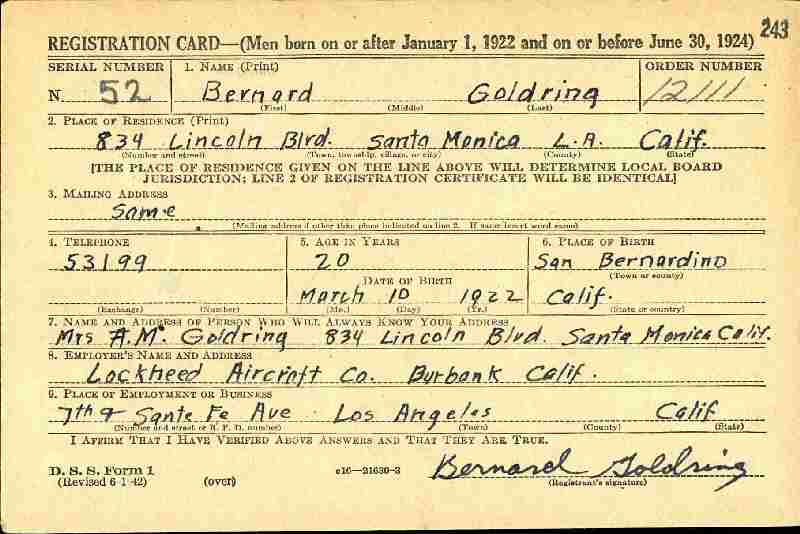 243
REGISTRATION CARD—(Men born on or after January 1, 1922 and on or before June 30, 1924)
SERIAL NUMBER 1. NAME (Print) ORDER NUMBER
N 52 Bernard Goldring 12111
(First) (Middle) (Last)
2. PLACE OF RESIDENCE (Print)
834 Lincoln Blvd. Santa Monica L.A. Calif.
(Number and street) (Town, township, village, or city) (County) (State)
[THE PLACE OF RESIDENCE GIVEN ON THE LINE ABOVE WILL DETERMINE LOCAL BOARD
JURISDICTION; LINE 2 OF REGISTRATION CERTIFICATE WILL BE IDENTICAL]
3. MAILING ADDRESS
Same
[Mailing address if other than place indicated on line 2. If same insert word same]
4. TELEPHONE 5. AGE IN YEARS 6. PLACE OF BIRTH
53199 20 San Bernardino
DATE OF BIRTH (Town or county)
March 10 1922 Calif.
(Exchange) (Number) (Mo.) (Day) (Yr.) (State or country)
7. NAME AND ADDRESS OF PERSON WHO WILL ALWAYS KNOW YOUR ADDRESS
Mrs A.M. Goldring 834 Lincoln Blvd. Santa Monica Calif.
8. EMPLOYER'S NAME AND ADDRESS
Lockheed Aircraft Co. Burbank Calif.
9. PLACE OF EMPLOYMENT OR BUSINESS
7th & Sante Fe Ave. Los Angeles Calif
(Number and street or R. F. D. number) (Town) (County) (State)
I AFFIRM THAT I HAVE VERIFIED ABOVE ANSWERS AND THAT THEY ARE TRUE.
D. S. S. Form 1 c16—21630-2 Bernard Goldring
(Revised 6-1-42) (over) (Registrant's signature)